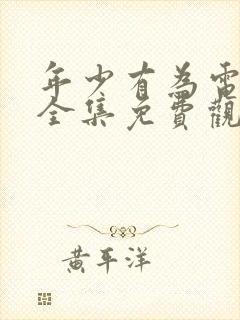 年少有為電
全集免費觀
黃平洋